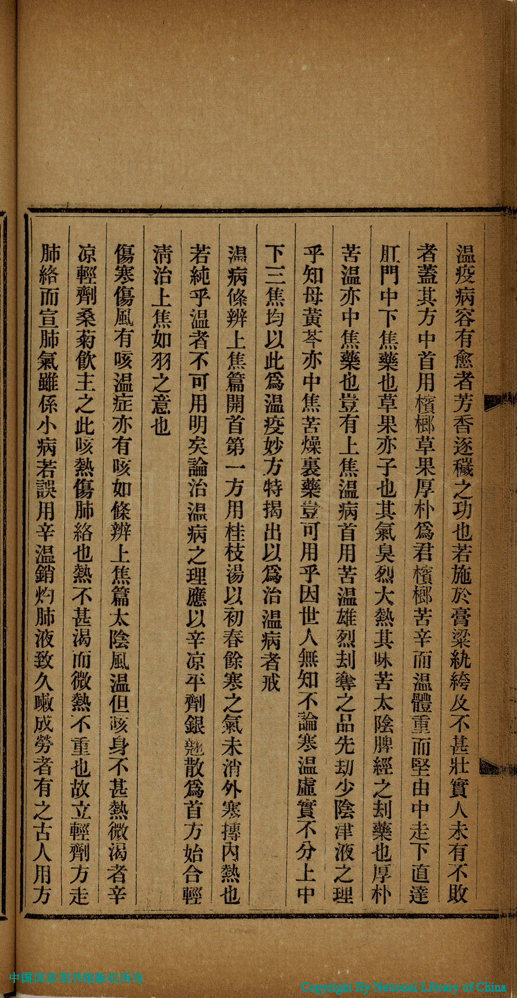 温疫病容有愈者芳香逐穢之功也若施於膏粱紈綺及不甚壯實人未有不敗
者蓋其方中首用檳榔草果厚朴爲君檳榔苦辛而温體重而堅由中走下直達
肛門中下焦藥也草果亦子也其氣臭烈大熱其味苦太陰脾經之刦藥也厚朴
苦温亦中焦藥也豈有上焦温病首用苦温雄烈刦奪之品先劫少陰津液之理
乎知母黃芩亦中焦苦燥裏藥豈可用乎因世人無知不論寒温虛實不分上中
下三焦均以此爲温疫妙方特揭出以爲治温病者戒
温病條辨上焦篇開首第一方用桂枝湯以初春餘寒之氣未消外寒摶内熱也
若純乎温者不可用明矣論治温病之理應以辛凉平劑銀翹散爲首方始合輕
淸治上焦如羽之意也
傷寒傷風有咳温症亦有咳如條辨上焦篇太陰風温但咳身不甚熱微渴者辛
凉輕劑桑菊飮主之此咳熱傷肺絡也熱不甚渴而微熱不重也故立輕劑方走
肺絡而宣肺氣雖係小病若誤用辛温銷灼肺液致久嗽成勞者有之古人用方
中国国家图书馆版权所有
Copyright By National Library of China